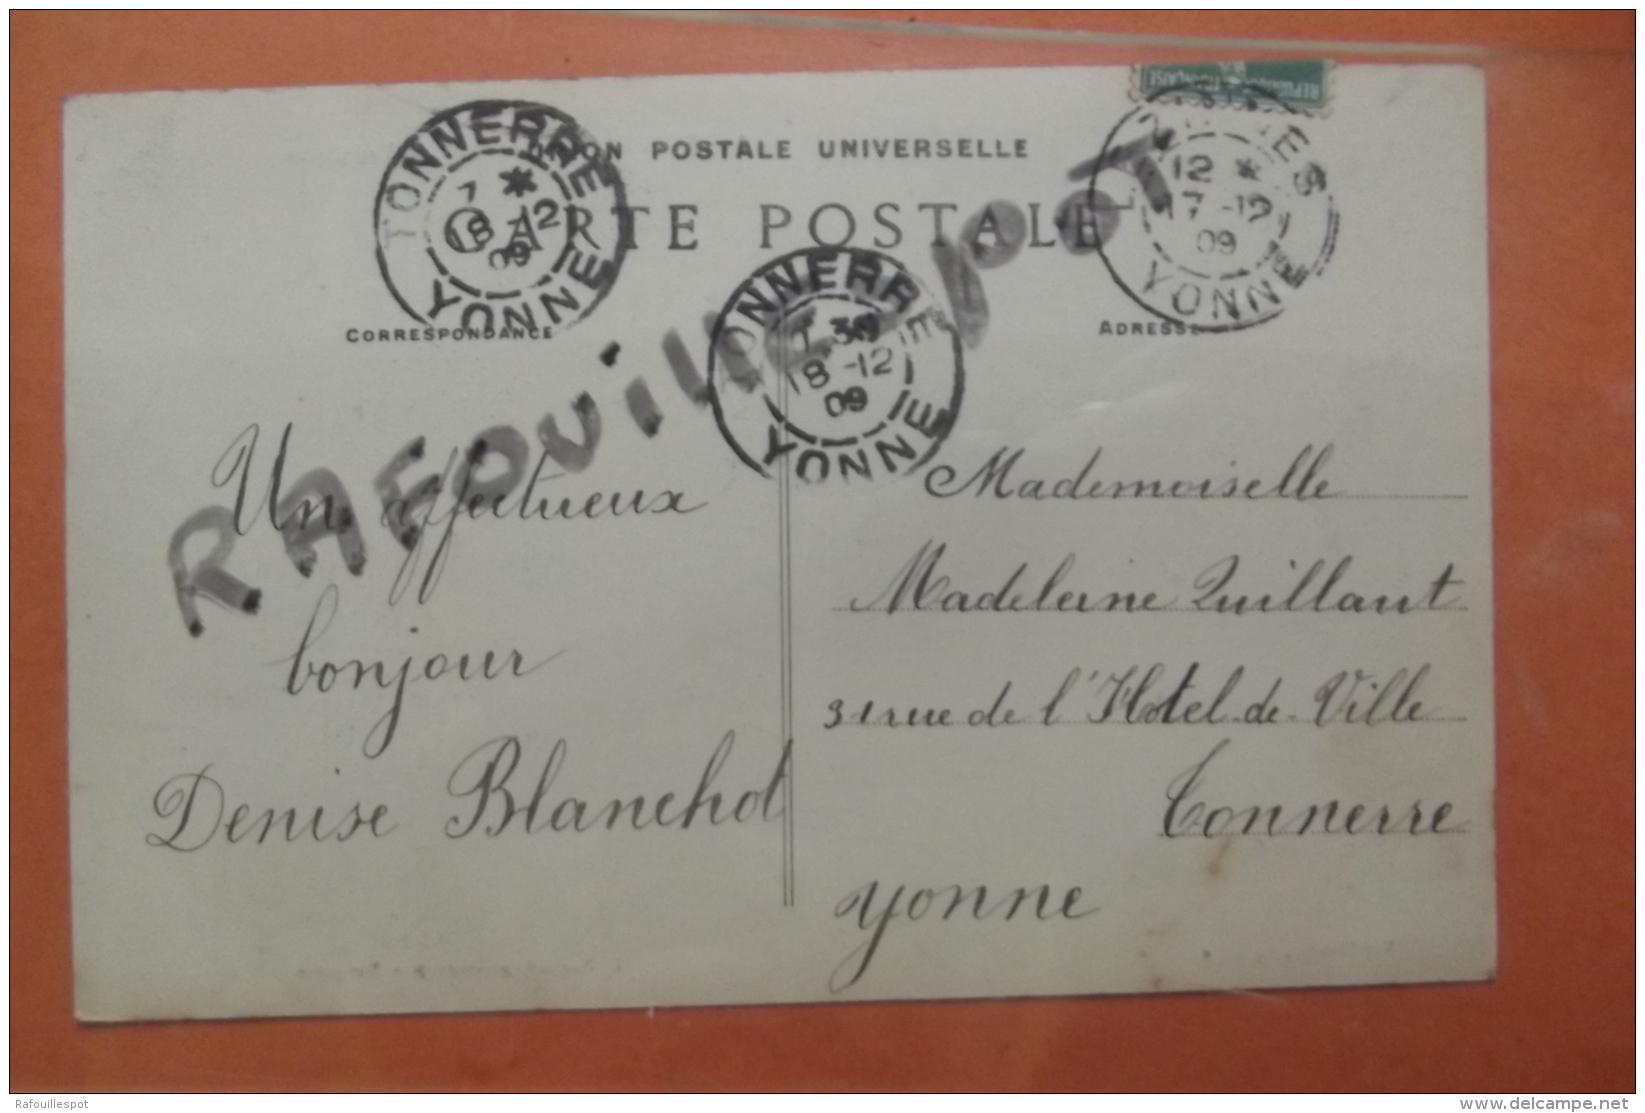 REPUBLIQUE FRANÇAISE
UNION POSTALE UNIVERSELLE
CARTE POSTALE
TONNERRE
7 *
18 -12
09
YONNE
12 *
17 -12
09
YONNE
TONNERRE
7 30
18 -12
09
YONNE
CORRESPONDANCE
ADRESSE
RAFOUILLESPOT
Un affectueux
bonjour
Denise Blanchot
Mademoiselle
Madeleine Quillaut
31 rue de l'Hotel-de-Ville
Tonnerre
Yonne
Rafouillespot
delcampe.net